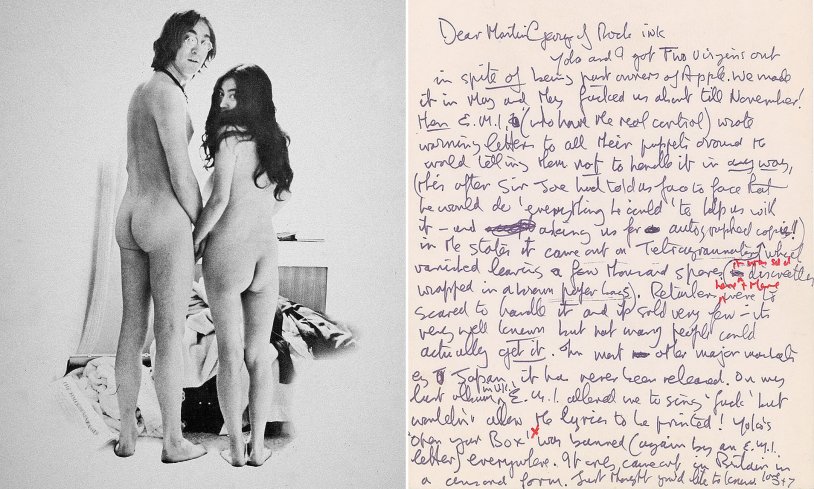 Dear Martin George of Rock ink
Yoko and I got Two Virgins out
in spite of being part owners of Apple. We made
it in May and they fucked us about till November!
Then E.M.I. (who have the real control) wrote
warning letters to all their puppets around the
world telling them not to handle it in any way,
(this after Sir Joe had told us face to face that
he would do 'everything he could' to help us with
it – and asking us for autographed copies!!)
in the states it came out on Tetragrammaton which
vanished leaving a few thousand spare (it was sold discreetly
here + there
wrapped in a brown paper bag). Retailers were to
scared to handle it and it sold very few – its
very well known but not many people could
actually get it. In most other major markets
eg Japan, it has never been released. On my
last album in U.K. E.M.I. allowed me to sing 'fuck' but
wouldn't allow the lyrics to be printed! Yoko's
'Open your Box' x was banned (again by an E.M.I.
letter) everywhere. It only came out in Britain in
a censored form. Just thought you'd like to know love